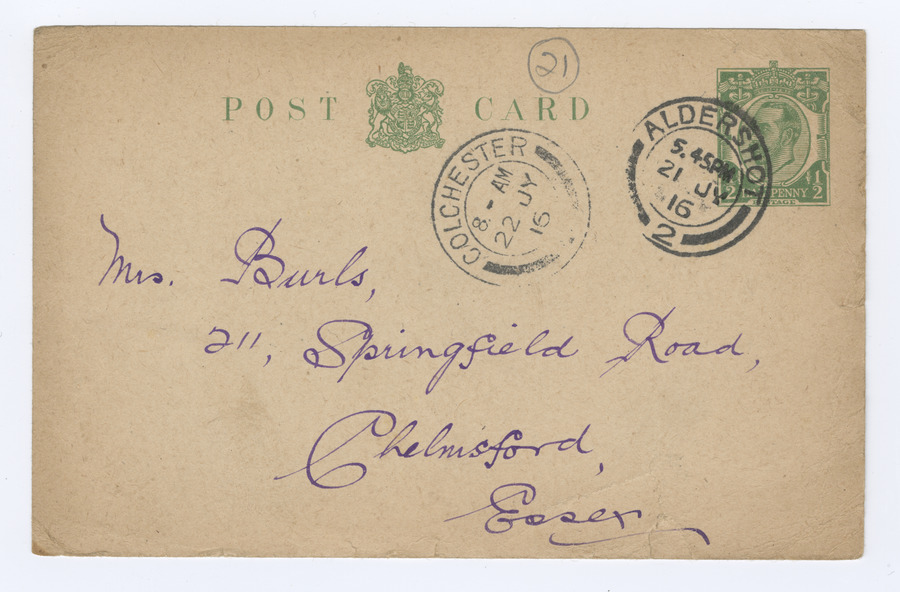 21
POST CARD
ALDERSHOT
5.45PM
21 JY
16
2
COLCHESTER
8 - AM
22 JY
16
PENNY
1/2
POSTAGE
Mrs. Burls,
211, Springfield Road,
Chelmsford,
Essex